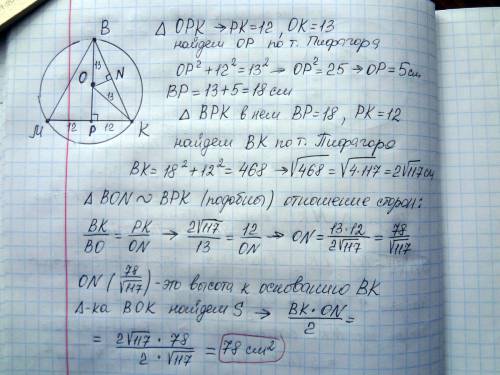 B
O
13
N
13
M
12
P
12
K
Δ OPK → PK=12, OK=13
найдем OP по т. Пифагора
OP²+12²=13² → OP²=25 → OP=5см
BP=13+5=18см
Δ BPK в нем BP=18, PK=12
найдем BK по т. Пифагора
BK=18²+12²=468 → √468=√4·117=2√117см
Δ BON ~ BPK (подобны) отношение сторон:
BK/BO = PK/ON → 2√117/13 = 12/ON → ON = 13·12/2√117 = 78/√117
ON (78/√117) - это высота к основанию BK
Δ-ка BOK найдем S → BK·ON/2 =
= 2√117 · 78/2 · √117 = 78 см²